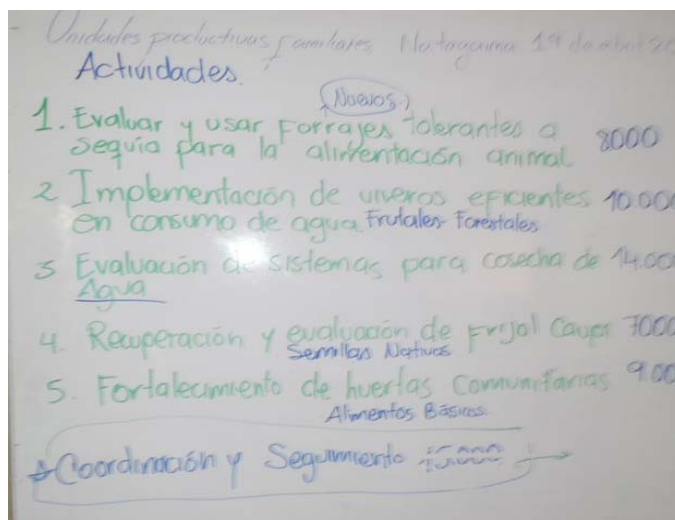 Unidades productivas familiares Natagaima 19 de abril 20
Actividades.
(Nuevos)
1. Evaluar y usar Forrajes tolerantes a 8000
sequía para la alimentación animal
2 Implementación de viveros eficientes 10.000
en consumo de agua Frutales-Forestales
3 Evaluación de sistemas para cosecha de 14.00
Agua
4. Recuperación y evaluación de Frijol Caupi 7000
Semillas Nativas
5. Fortalecimiento de huertas comunitarias 9.00
Alimentos Básicos
Coordinación y Seguimiento